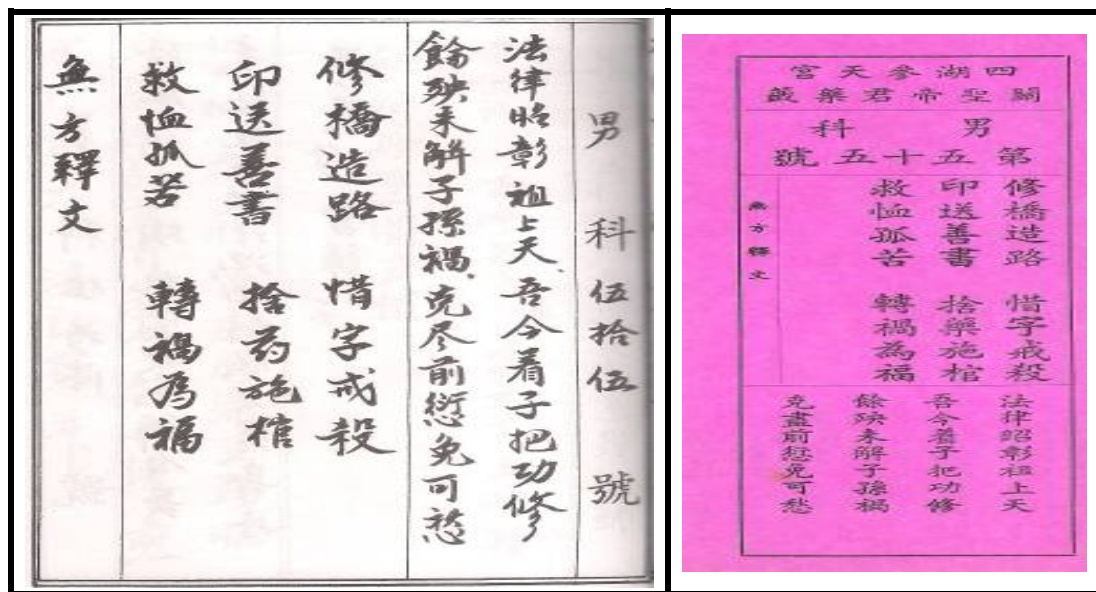 男 科 伍拾伍 號
法律昭彰祖上天、吾今着子把功修
餘殃未解子孫禍、克尽前愆免可愁
修橋造路 惜字戒殺
印送善書 捨药施棺
救恤孤苦 轉禍為福
無方釋文
四湖參天宮
關聖帝君藥籤
男 科
第五十五號
修橋造路 惜字戒殺
印送善書 捨藥施棺
救恤孤苦 轉禍為福
無方釋文
法律昭彰祖上天
吾今着子把功修
餘殃未解子孫禍
克盡前愆免可愁